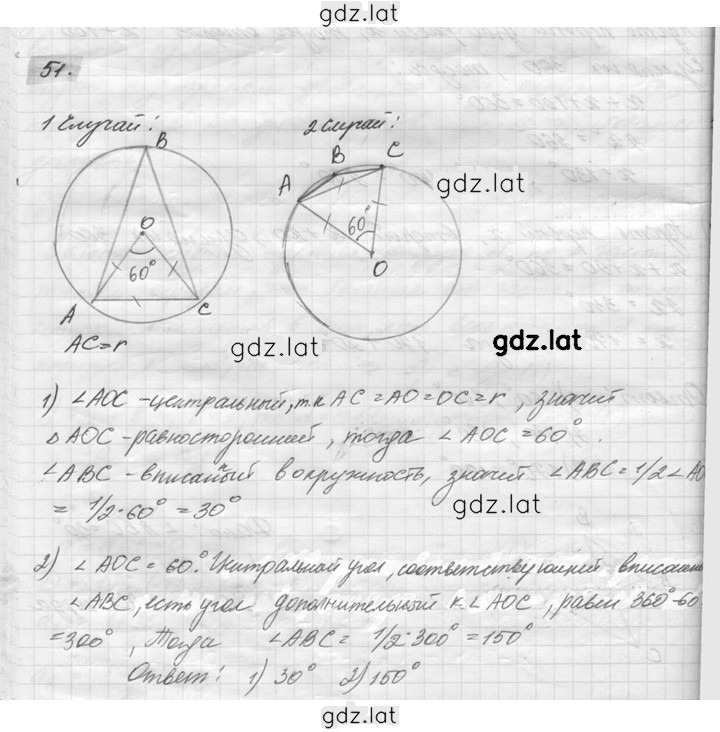 gdz.lat
51.
1 Случай!
2 Случай!
B
O
60°
A
C
AC=r
A
B
C
60°
O
gdz.lat
gdz.lat
gdz.lat
1) ∠AOC -центральный, т.к AC=AO=OC=r, значит
△ AOC-равносторонний, тогда ∠AOC=60°.
∠ABC -вписаный в окружность, значит ∠ABC=1/2∠AO
= 1/2·60°=30°
gdz.lat
2) ∠AOC=60°. Центральный угол, соответствующий вписанн
∠ABC, есть угол дополнительный к ∠AOC, равен 360°-60
=300°, Тогда ∠ABC= 1/2·300°=150°
Ответ! 1) 30° 2) 150°
gdz.lat